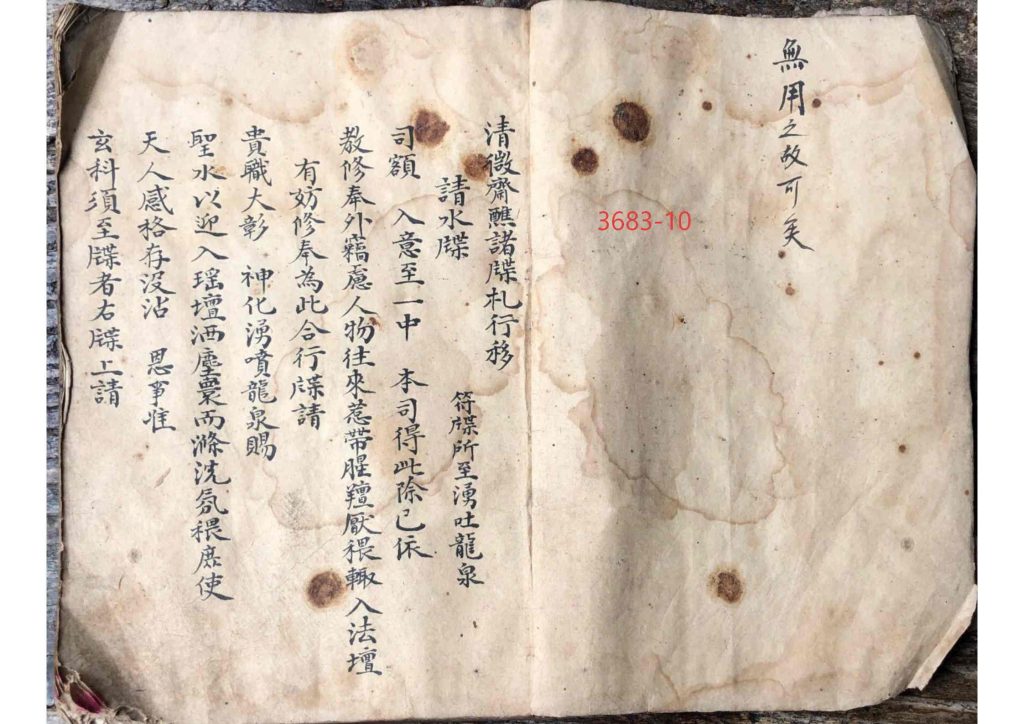 無用之故可矣
3683-10
清微齋醮諸牒札行移
請水牒 符牒所至湧吐龍泉
司額 入意至一中 本司得此除已依
教修奉外竊慮人物往來惹帶腥羶厭穢輙入法壇
有妨修奉為此合行牒請
貴職大彰 神化湧噴龍泉賜
聖水以迎入瑶壇洒塵寰而滌洗氛穢庶使
天人感格存没沾 恩事惟
玄科須至牒者右牒上請